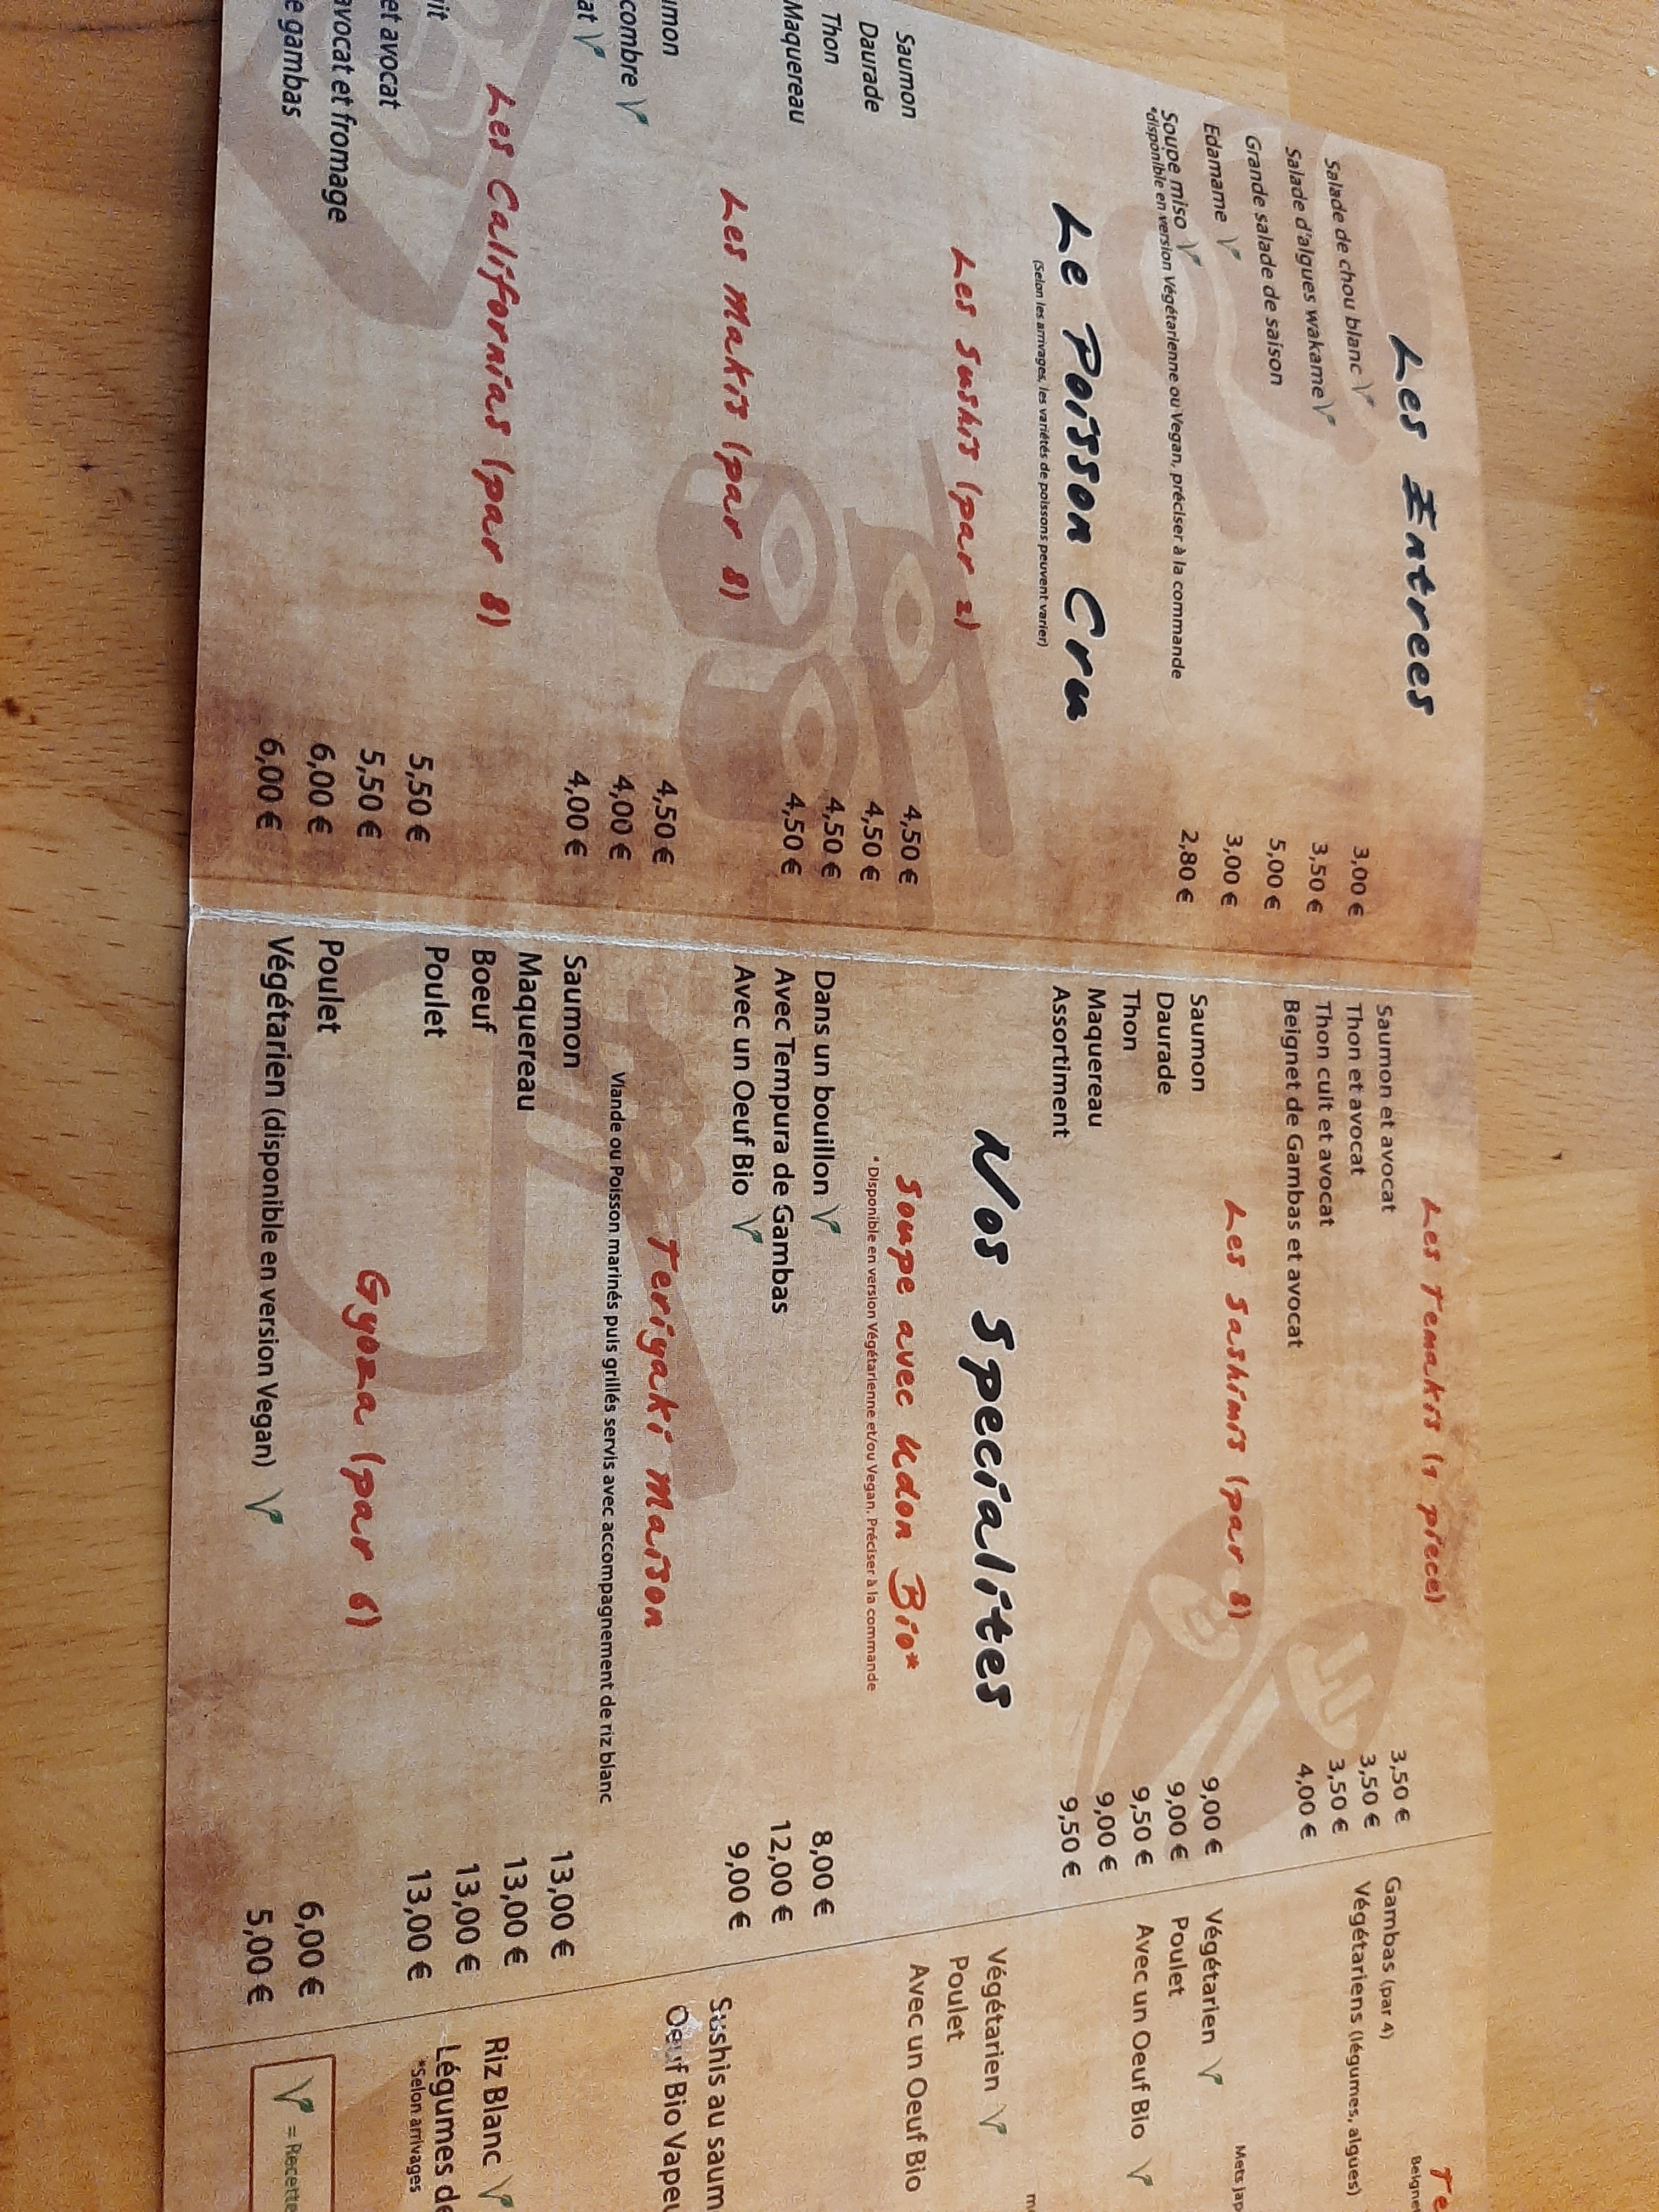 Les Entrees
Salade de chou blanc 3,00 €
Salade d'algues wakame 3,50 €
Grande salade de saison 5,00 €
Edamame 3,00 €
Soupe miso 2,80 €
*disponible en version Végétarienne ou Vegan, préciser à la commande
Le Poisson Cru
(Selon les arrivages, les variétés de poissons peuvent varier)
Les Sushis (par 2)
Saumon 4,50 €
Daurade 4,50 €
Thon 4,50 €
Maquereau 4,50 €
Les Makis (par 8)
umon 4,50 €
combre 4,00 €
at 4,00 €
Les Californias (par 8)
it 5,50 €
et avocat 5,50 €
avocat et fromage 6,00 €
e gambas 6,00 €
Les Temakis (1 piece)
Saumon et avocat 3,50 €
Thon et avocat 3,50 €
Thon cuit et avocat 3,50 €
Beignet de Gambas et avocat 4,00 €
Les Sashimis (par 8)
Saumon 9,00 €
Daurade 9,00 €
Thon 9,50 €
Maquereau 9,00 €
Assortiment 9,50 €
Nos Specialites
Soupe avec Udon Bio*
* Disponible en version Végétarienne et/ou Vegan. Préciser à la commande
Dans un bouillon 8,00 €
Avec Tempura de Gambas 12,00 €
Avec un Oeuf Bio 9,00 €
Teriyaki Maison
Viande ou Poisson marinés puis grillés servis avec accompagnement de riz blanc
Saumon 13,00 €
Maquereau 13,00 €
Boeuf 13,00 €
Poulet 13,00 €
Gyoza (par 6)
Poulet 6,00 €
Végétarien (disponible en version Vegan) 5,00 €
Te
Beignet
Gambas (par 4)
Végétariens (légumes, algues)
Mets jap
Végétarien
Poulet
Avec un Oeuf Bio
Végétarien
Poulet
Avec un Oeuf Bio
Sushis au saum
Oeuf Bio Vapeu
Riz Blanc
Légumes de
*Selon arrivages
= Recette